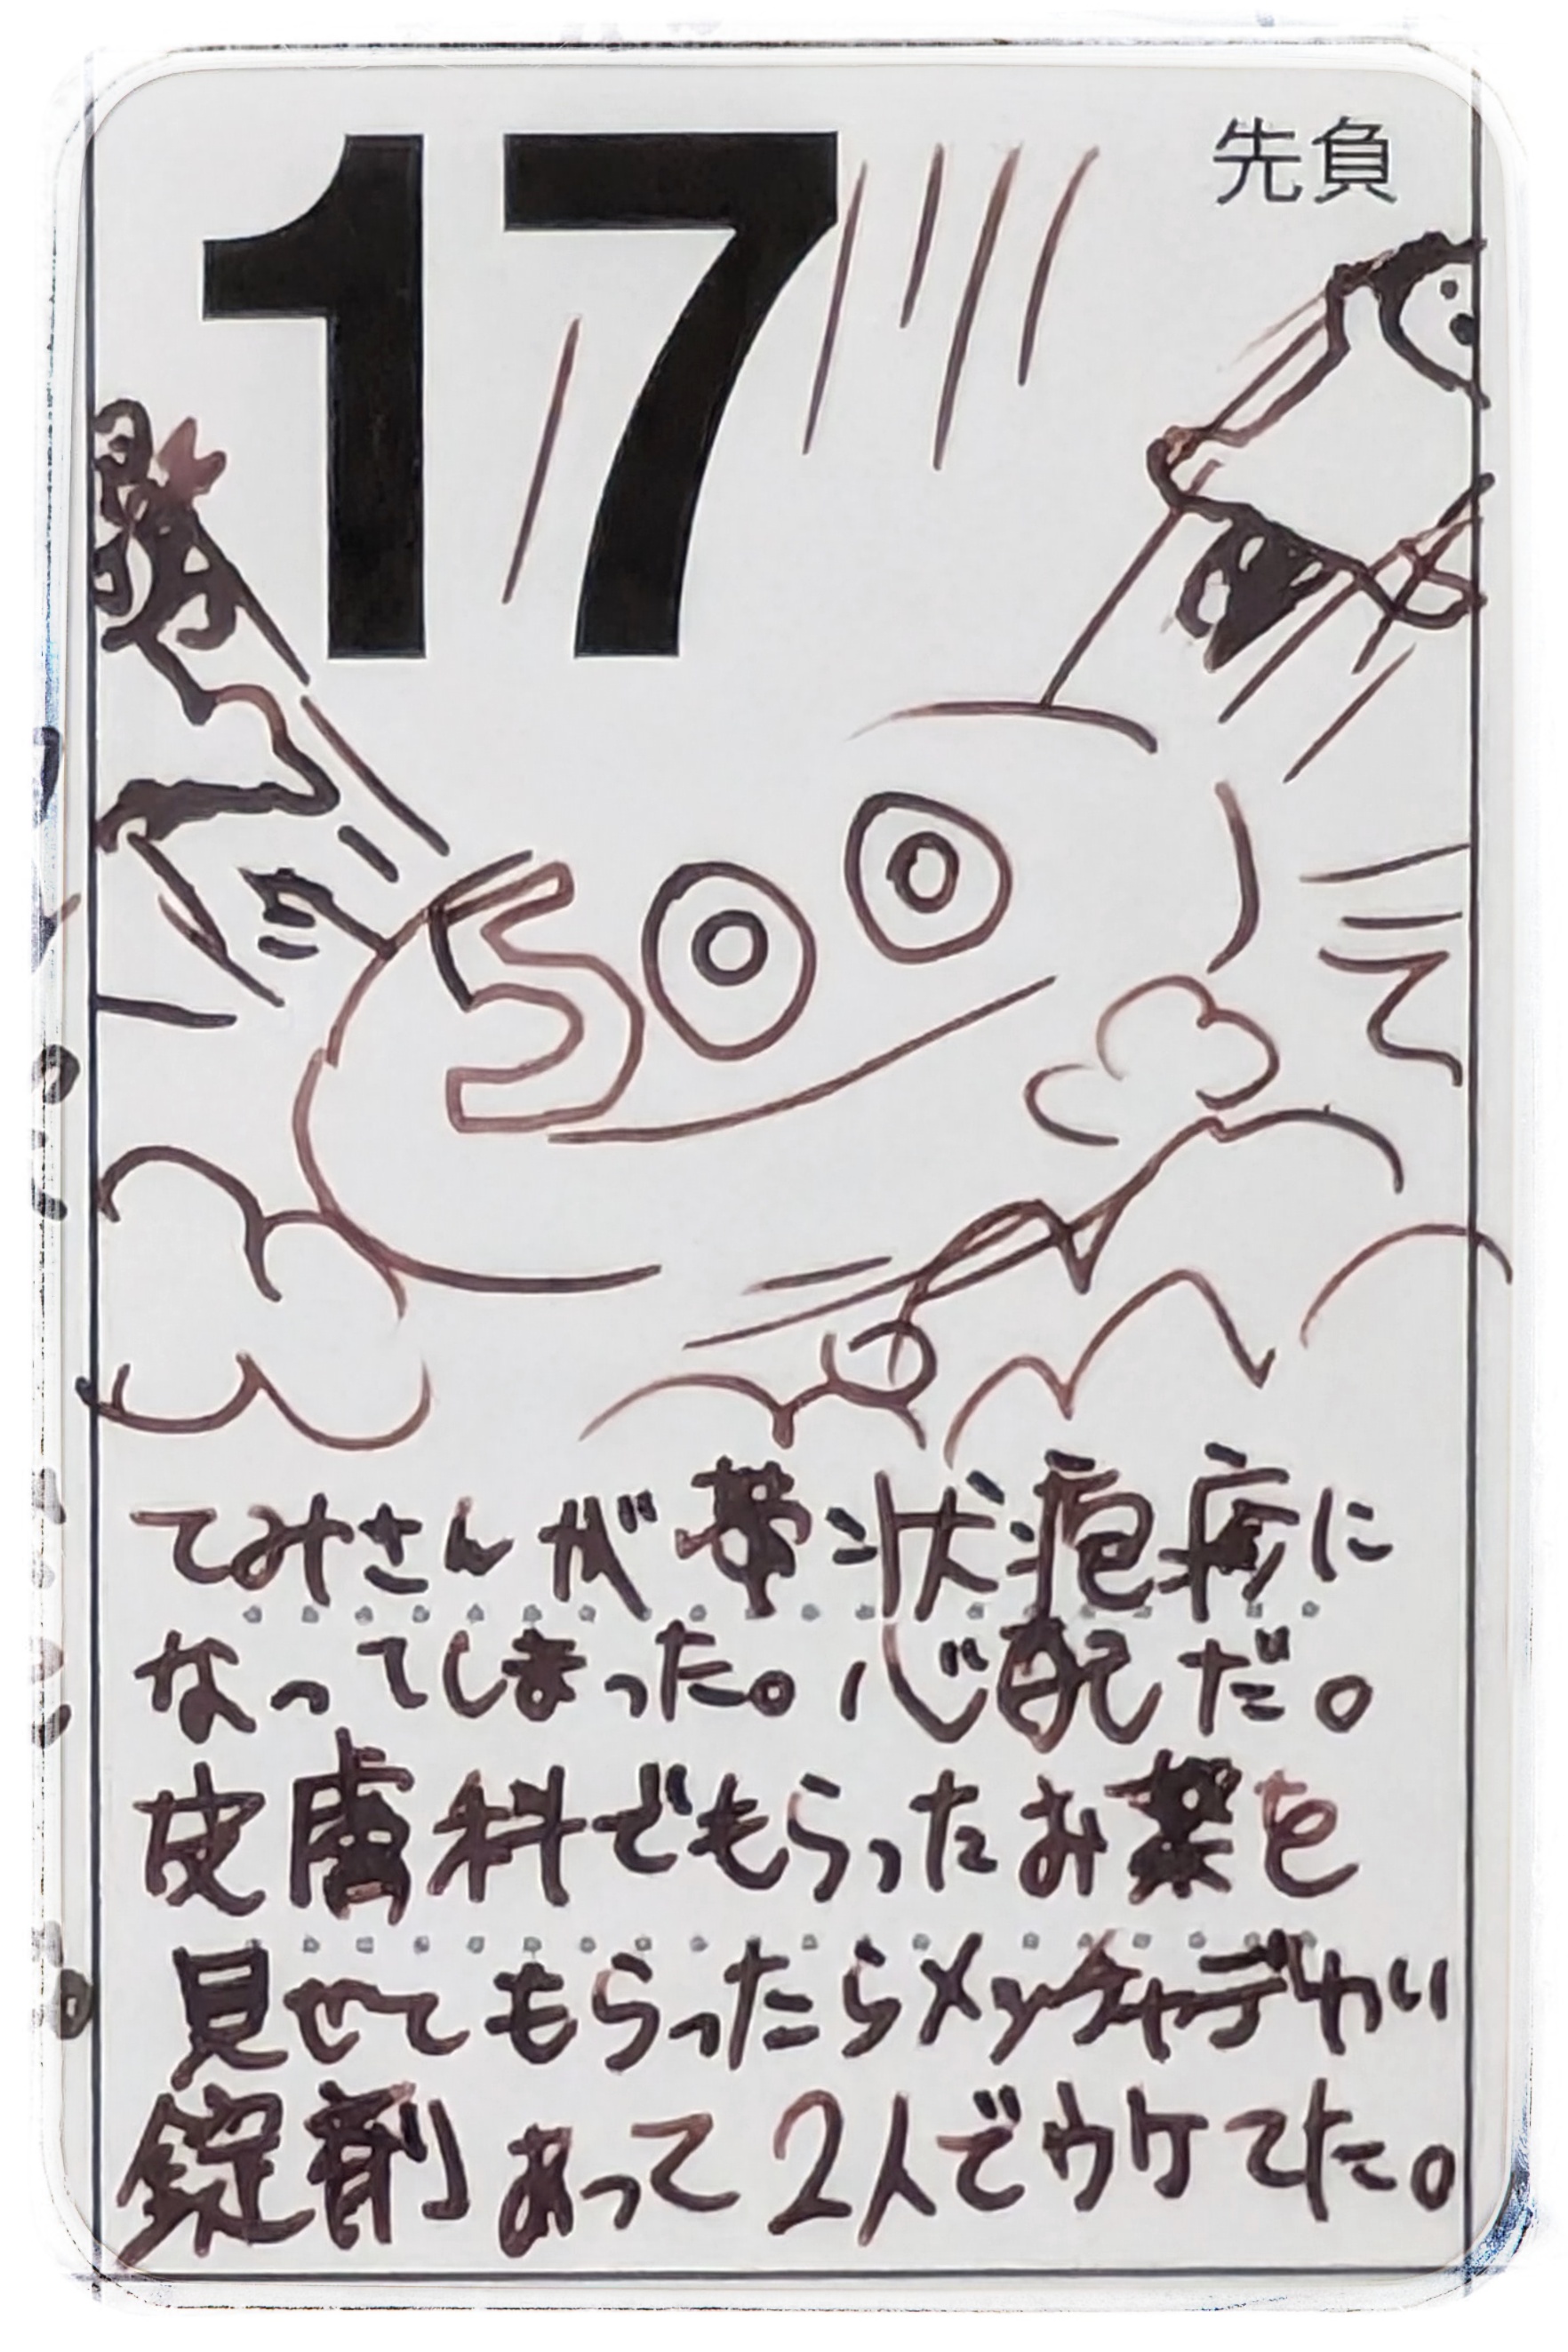 17
先負
500
てみさんが帯状疱疹に
なってしまった。心配だ。
皮膚科でもらったお薬を
見せてもらったらメッチャデカい
錠剤あって2人でウケてた。